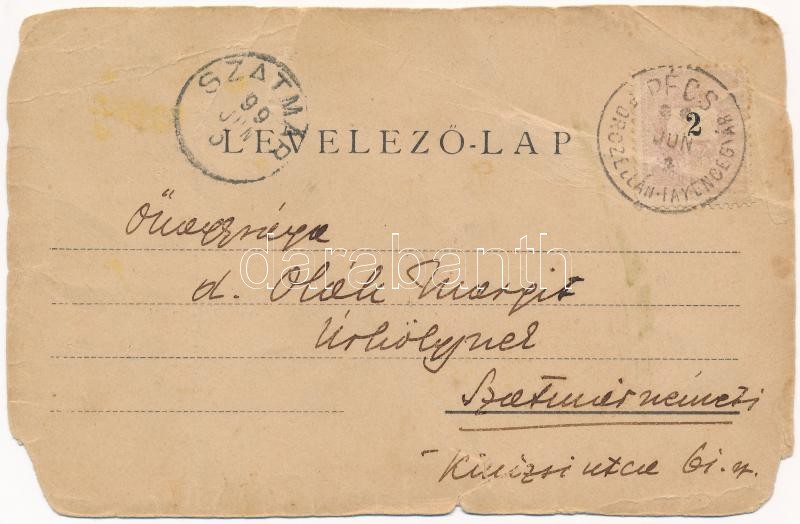 SZATMÁR
99
JUN
5
PÉCS
99
JUN
3
PORCZELLÁN-FAYENCEGYÁR
2
LEVELEZŐ-LAP
Őnagysága
d. Oláh Margit
Úrhölgynek
Szatmárnémeti
Kinizsi utca 61. sz.
darabanth